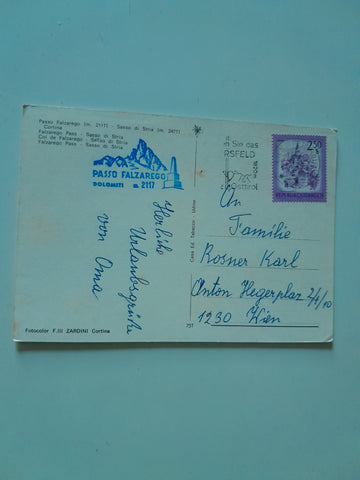 Passo Falzarego (m. 2117) - Sasso di Stria (m. 2477)
Cortina
Falzarego Pass - Sasso di Stria
Col de Falzarego - Sasso di Stria
Falzarego Pass - Sasso di Stria
PASSO FALZAREGO
DOLOMITI m. 2117
Herliche
Urlaubsgrüße
von Oma
Fotocolor F.lli ZARDINI Cortina
751
Casa Ed. Tabacco - Udine
Sie das
RSFELD
Osttirol
2.50
REPUBLIK ÖSTERREICH
An
Familie
Rosner Karl
Anton Hegerplaz 2/4/10
1230 Wien